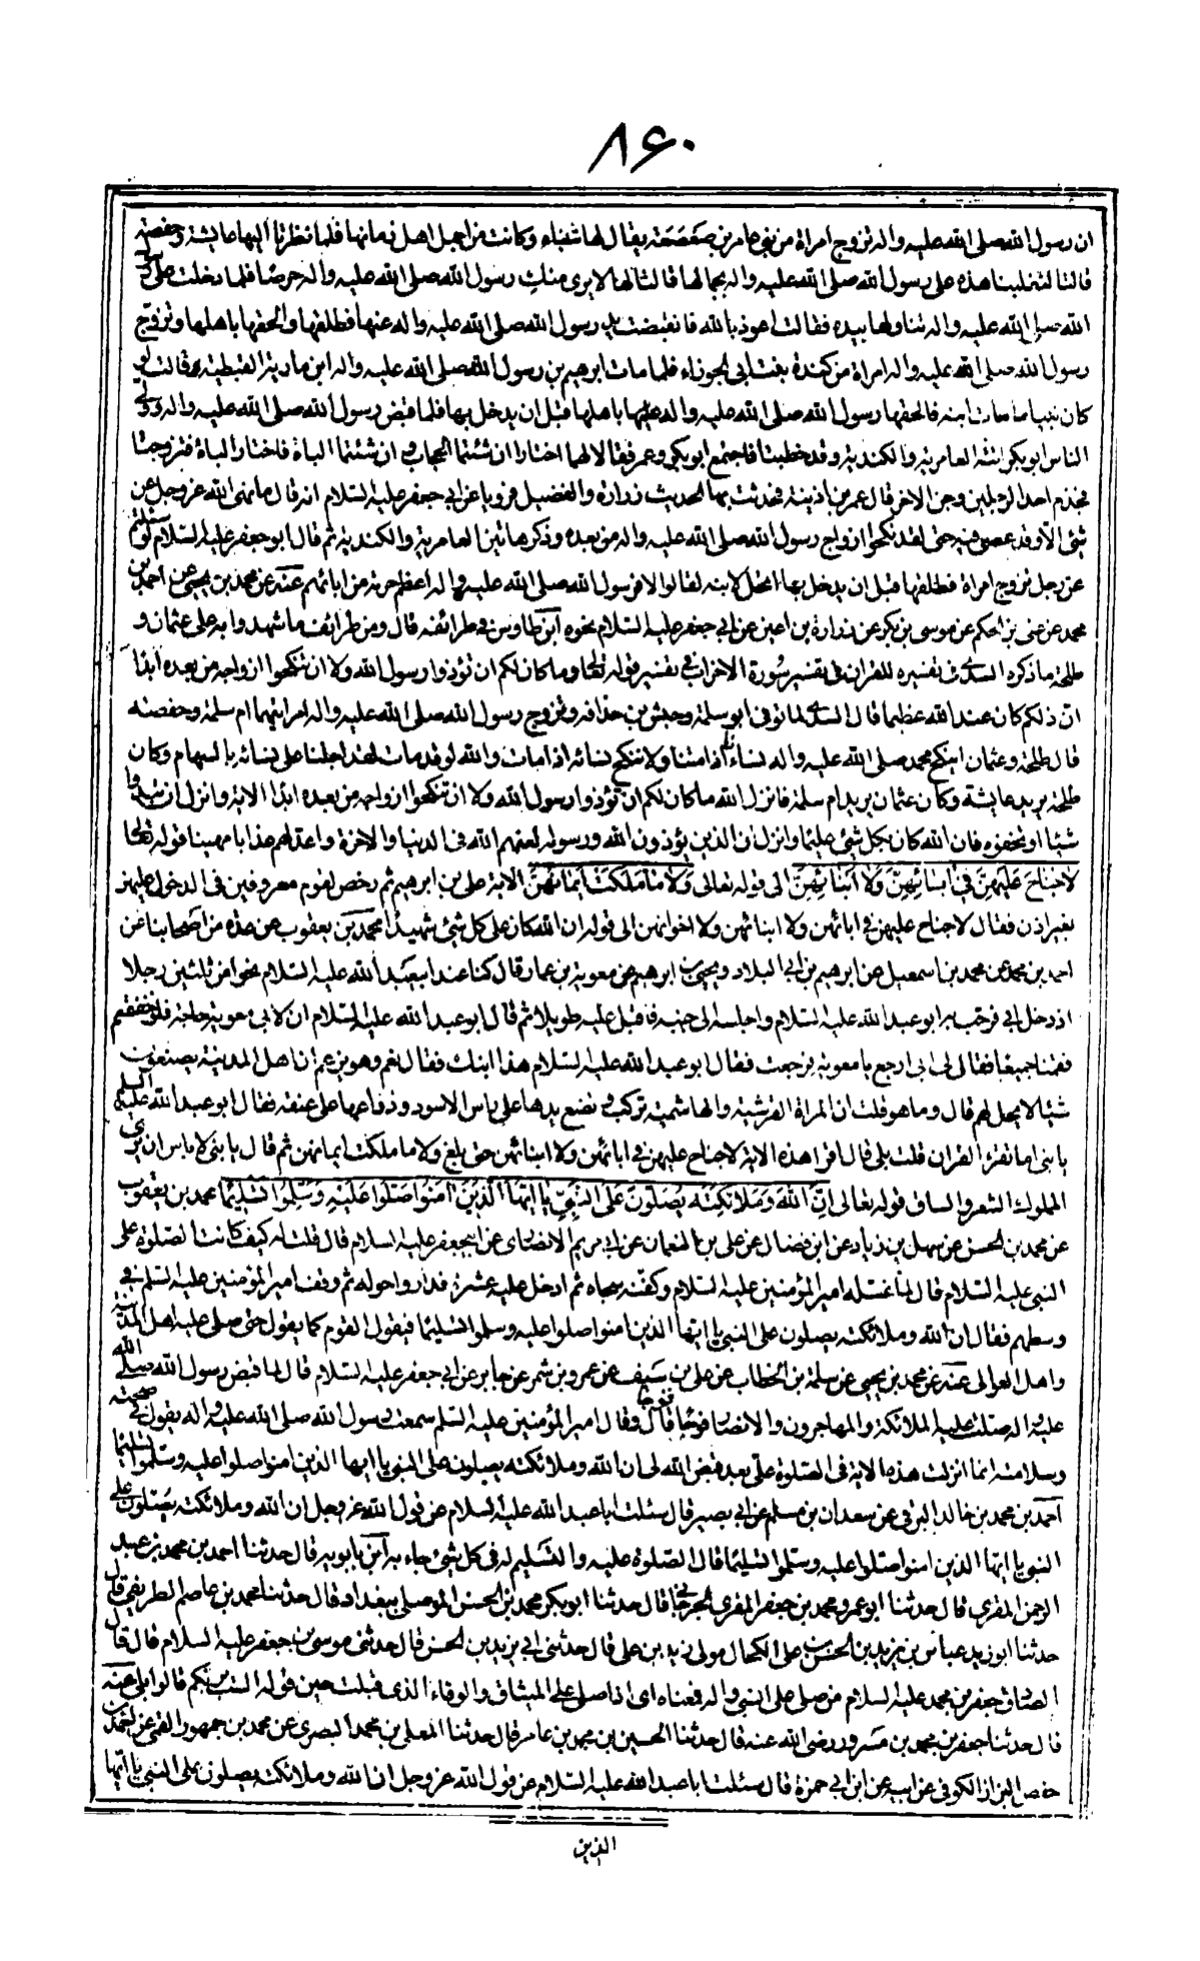 ٨۶٠
ان رسول الله صلى الله عليه واله تزوج امراة من بنى عامر بن صعصعة يقال لها شنباء وكانت من اجمل اهل زمانها فلما نظرنا اليها عايشة وحفصة
قالتا لتغلبنا هذه على رسول الله صلى الله عليه واله بجمالها فقالتا لها لا يرى منك رسول الله صلى الله عليه واله حرصا فلما دخلت على رسول
الله صلى الله عليه واله تناولها بيده فقالت اعوذ بالله فانقبضت يد رسول الله صلى الله عليه واله عنها فطلقها والحقها باهلها وتزوج
رسول الله صلى الله عليه واله امراة من كندة بنت ابى الجوزاء فلما مات ابرهيم بن رسول الله صلى الله عليه واله ابن مارية القبطية قالت لو
كان نبيا ما مات ابنه فالحقها رسول الله صلى الله عليه واله باهلها قبل ان يدخل بها فلما قبض رسول الله صلى الله عليه واله وولى
الناس ابو بكر اتته العامرية والكندية وقد خطبتا فاجتمع ابو بكر وعمر فقالا لهما اختارا ان شئتما الحجاب وان شئتما الباة فاختارتا الباة فتزوجتا
فجذم احد الرجلين وجن الاخر قال عمر بن اذينة فحدثت بهذا الحديث زرارة والفضيل فرويا عن ابى جعفر عليه السلام انه قال ما نهى الله عز وجل عن
شئ الا وقد عصى فيه حتى لقد نكحوا ازواج رسول الله صلى الله عليه واله من بعده وذكر هاتين العامرية والكندية ثم قال ابو جعفر عليه السلام لو سئلتم
عن رجل تزوج امراة فطلقها قبل ان يدخل بها اتحل لابنه لقالوا لا فرسول الله صلى الله عليه واله اعظم حرمة من ابائهم عنه عن محمد بن يحيى عن احمد بن
محمد عن على بن الحكم عن موسى بن بكر عن زرارة بن اعين عن ابى جعفر عليه السلام نحوه ابن طاوس فى طرائفه قال ومن طرائف ما شهدوا به على عثمان و
طلحة ما ذكره السدى فى تفسيره للقران فى تفسير سورة الاحزاب فى تفسير قوله تعالى وما كان لكم ان تؤذوا رسول الله ولا ان تنكحوا ازواجه من بعده ابدا
ان ذلكم كان عند الله عظيما قال السدى لما توفى ابو سلمة وحبش بن حذافة وتزوج رسول الله صلى الله عليه واله امراتيهما ام سلمة وحفصة
قال طلحة وعثمان اينكح محمد صلى الله عليه واله نساءنا اذا متنا ولا ننكح نسائه اذا مات والله لو قد مات لقد اجلنا على نسائه بالسهام وكان
طلحة يريد عايشة وكان عثمان يريد ام سلمة فانزل الله ما كان لكم ان تؤذوا رسول الله ولا ان تنكحوا ازواجه من بعده ابدا الاية وانزل ان تبدوا
شيئا او تخفوه فان الله كان بكل شئ عليما وانزل ان الذين يؤذون الله ورسوله لعنهم الله فى الدنيا والاخرة واعد لهم عذابا مهينا قوله تعالى
لَا جُنَاحَ عَلَيْهِنَّ فِي آبَائِهِنَّ وَلَا أَبْنَائِهِنَّ الى قوله تعالى وَلَا مَا مَلَكَتْ أَيْمَانُهُنَّ الاية على بن ابرهيم ثم رخص لقوم معروفين فى الدخول عليهن
بغير اذن فقال لا جناح عليهن فى ابائهن ولا ابنائهن ولا اخوانهن الى قوله ان الله كان على كل شئ شهيدا محمد بن يعقوب عن عدة من اصحابنا عن
احمد بن محمد عن محمد بن اسمعيل عن ابرهيم بن ابى البلاد ويحيى بن ابرهيم عن معوية بن عمار قال كنا عند ابيعبد الله عليه السلام نحوا من ثلثين رجلا
اذ دخل ابى فرحب به ابو عبد الله عليه السلام واجلسه الى جنبه فاقبل عليه طويلا ثم قال ابو عبد الله عليه السلام ان لابى معوية حاجة فلو خففتم
فقمنا جميعا فقال لى ابى ارجع يا معوية فرجعت فقال ابو عبد الله عليه السلام هذا ابنك فقال نعم وهو يزعم ان اهل المدينة يصنعون
شيئا لا يحل لهم قال وما هو قلت ان المراة القرشية والهاشمية تركب وتضع يدها على راس الاسود وذراعها على عنقه فقال ابو عبد الله عليه السلم
يا بنى اما تقرء القران قلت بلى قال اقرا هذه الاية لا جناح عليهن فى ابائهن ولا ابنائهن حتى بلغ ولا ما ملكت ايمانهن ثم قال يا بنى لا باس ان يرى
المملوك الشعر والساق قوله تعالى اِنَّ اللهَ وَمَلَائِكَتَهُ يُصَلُّونَ عَلَى النَّبِيِّ يَا اَيُّهَا الَّذِينَ اٰمَنُوا صَلُّوا عَلَيْهِ وَسَلِّمُوا تَسْلِيمًا محمد بن يعقوب
عن محمد بن الحسن عن سهل بن زياد عن ابن فضال عن على بن النعمان عن ابى مريم الانصارى عن ابيجعفر عليه السلام قال قلت له كيف كانت الصلوة على
النبى عليه السلام قال لما غسله امير المؤمنين عليه السلام وكفنه سجاه ثم ادخل عليه عشرة فداروا حوله ثم وقف امير المؤمنين عليه السلم فى
وسطهم فقال ان الله وملائكته يصلون على النبى يا ايها الذين امنوا صلوا عليه وسلموا تسليما فيقول القوم كما يقول حتى صلى عليه اهل المدينة
واهل العوالى عنه عن محمد بن يحيى عن سلمة بن الخطاب عن على بن سيف عن عمرو بن شمر عن جابر عن ابى جعفر عليه السلام قال لما قبض رسول الله صلى الله
عليه واله صلت عليه الملائكة والمهاجرون والانصار فوجا فوجا قال وقال امير المؤمنين عليه السلم سمعت رسول الله صلى الله عليه واله يقول فى صحته
وسلامته انما انزلت هذه الاية فى الصلوة على بعد قبض الله لى ان الله وملائكته يصلون على النبى يا ايها الذين امنوا صلوا عليه وسلموا تسليما
احمد بن محمد بن خالد البرقى عن سعدان بن مسلم عن ابى بصير قال سئلت ابا عبد الله عليه السلام عن قول الله عز وجل ان الله وملائكته يصلون على
النبى يا ايها الذين امنوا صلوا عليه وسلموا تسليما قال الصلوة عليه والتسليم له فى كل شئ جاء به ابن بابويه قال حدثنا احمد بن محمد بن عبد
الرحمن المقرى قال حدثنا ابو عمرو محمد بن جعفر المقرى الجرجانى قال حدثنا ابو بكر محمد بن الحسن الموصلى ببغداد قال حدثنا محمد بن عاصم الطريفى قال
حدثنا ابو زيد عباس بن يزيد بن الحسن بن على الكحال مولى زيد بن على قال حدثنى ابى يزيد بن الحسن قال حدثنى موسى بن جعفر عليه السلام قال قال
الصادق جعفر بن محمد عليه السلام من صلى على النبى واله فمعناه انى انا على الميثاق والوفاء الذى قبلت حين قوله الست بربكم قالوا بلى عنه
قال حدثنا جعفر بن محمد بن مسرور رضى الله عنه قال حدثنا الحسين بن محمد بن عامر قال حدثنا المعلى بن محمد البصرى عن محمد بن جمهور القمى عن احمد بن
حفص البزاز الكوفى عن ابيه عن ابن ابى حمزة قال سئلت ابا عبد الله عليه السلام عن قول الله عز وجل ان الله وملائكته يصلون على النبى يا ايها
الذين